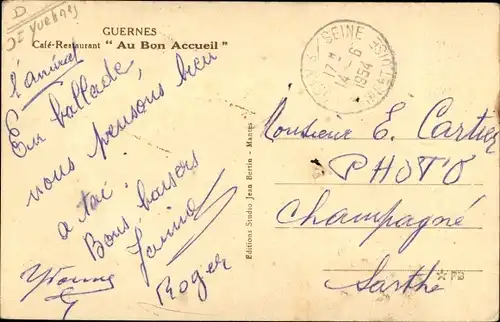 D
Yvelines
GUERNES
Café-Restaurant "Au Bon Accueil"
l'amiral
En ballade,
nous pensons bien
a toi.
Bons baisers
Janine
Yvonne
Roger
Editions Studio Jean Bertin - Mantes
SEINE
17
14 - 6
1954
Monsieur E. Cartier
PHOTO
Champagné
Sarthe